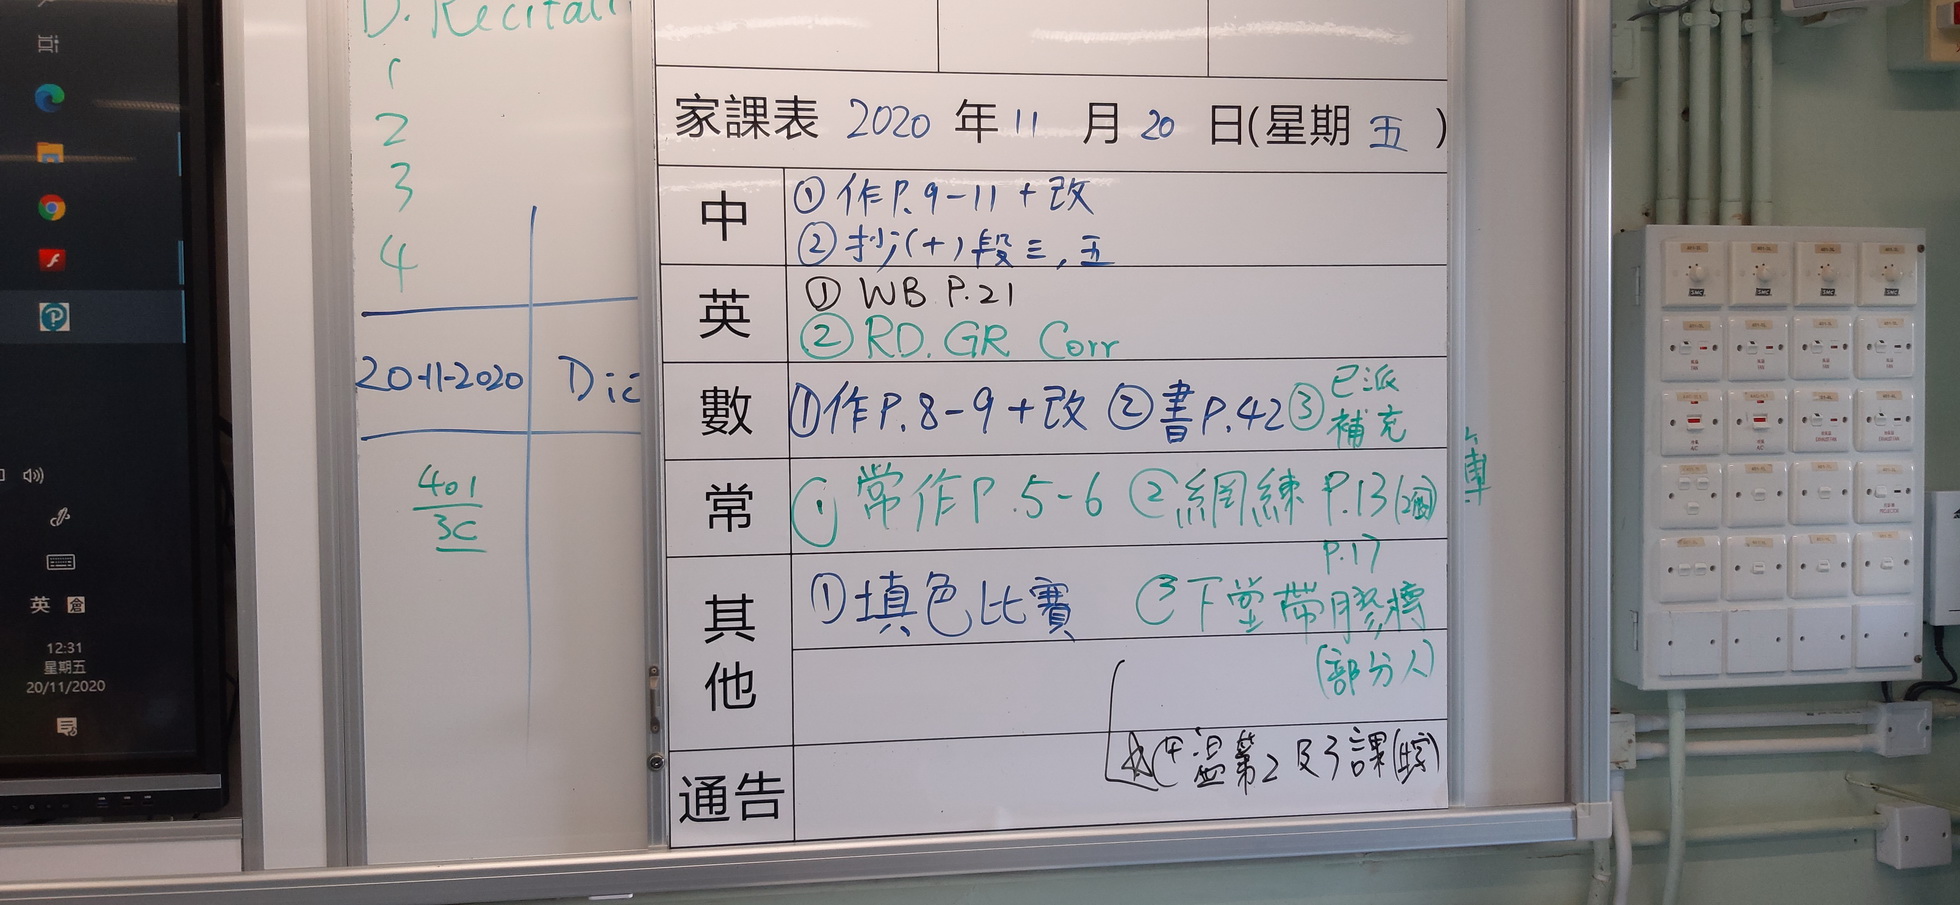 D. Recitati
1
2
3
4
20-11-2020 Dic
401
3C
英 倉
12:31
星期五
20/11/2020
家課表 2020 年 11 月 20 日(星期 五 )
中
① 作P.9-11 + 改
② 抄(+)段三,五
英
① WB P.21
② RD. GR Corr
數
①作P.8-9+改 ②書P.42 ③已派
補充
常
① 常作P.5-6 ②網練 P.13
P.17
其他
①填色比賽 ③下堂帶膠樽
(部分人)
通告
溫第2及3課